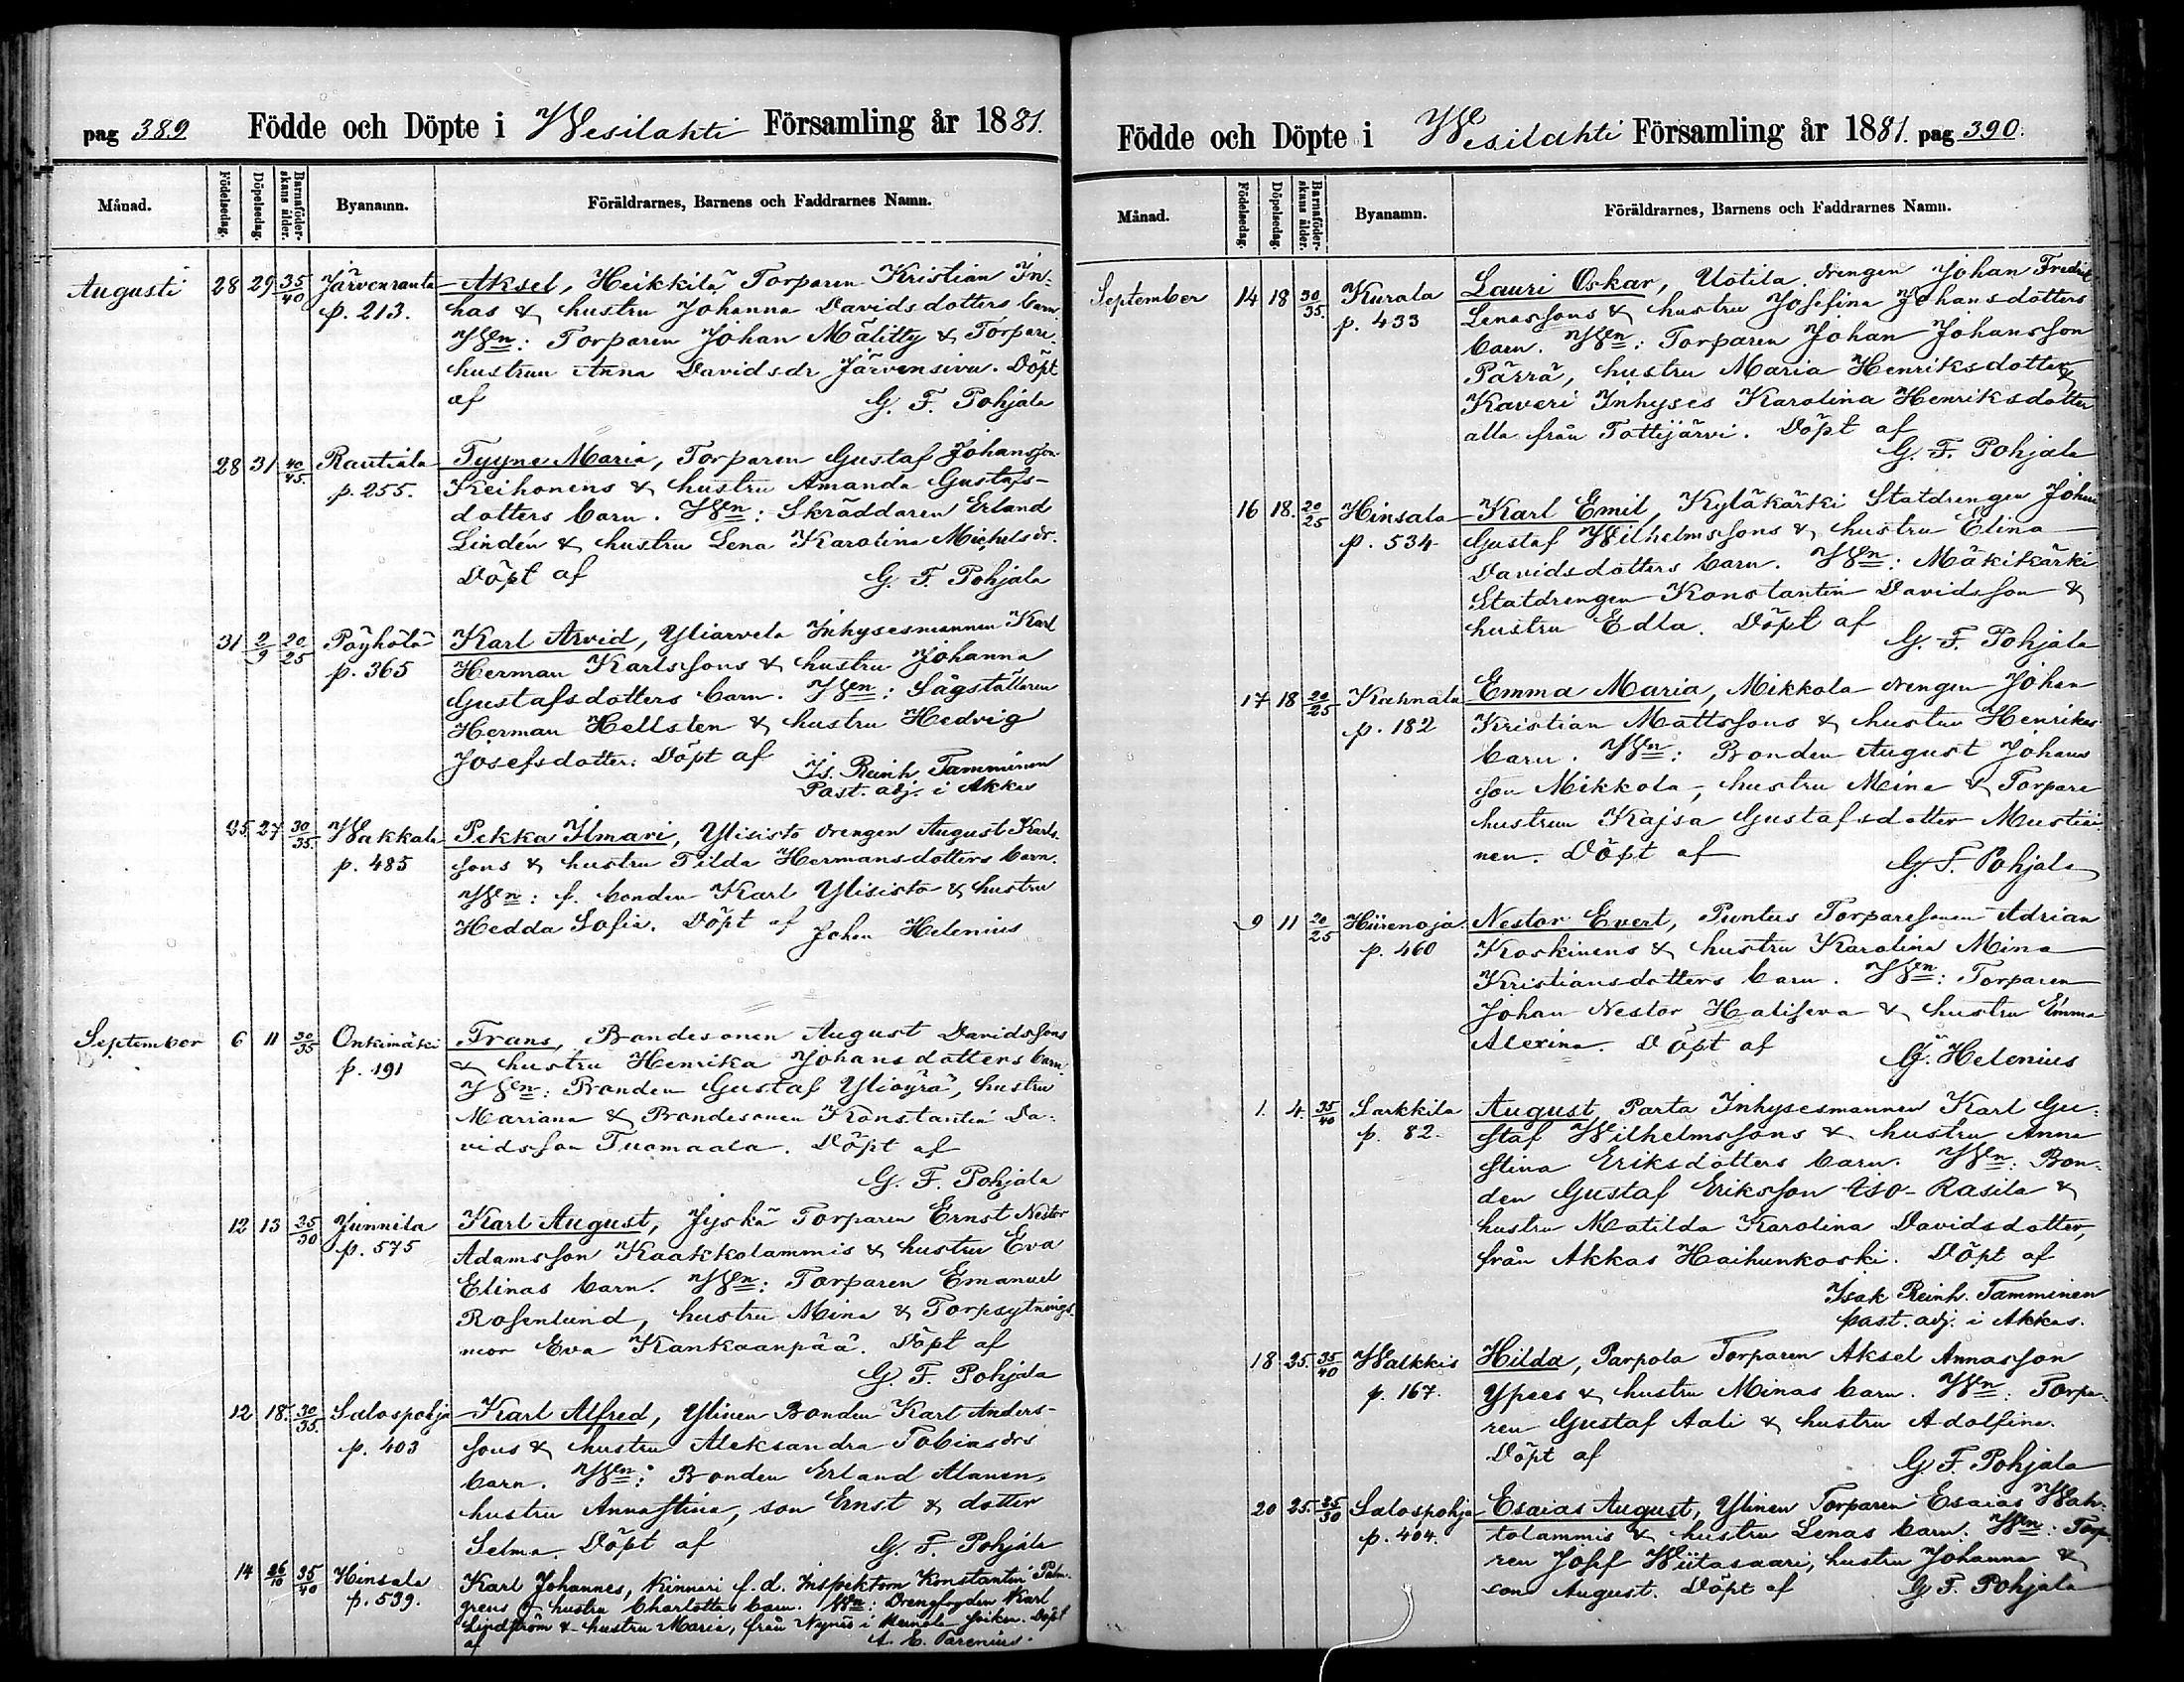 pag 389 Födde och Döpte i Wesilahti Församling år 1881.
Månad. Födelsedag. Döpelsedag. Barnaföderskans ålder. Byanamn. Föräldrarnes, Barnens och Faddrarnes Namn.
Augusti 28 29 35/40 Järvenranta Aksel, Heikkilä Torparen Kristian In-
p. 213. has & hustru Johanna Davidsdotters barn
Wn: Torparen Johan Mälitty & Torpare-
hustrun Anna Davidsdr Järvensivu. Döpt
af G. F. Pohjala
28 31 40/45. Rautiala Tyyne Maria, Torparen Gustaf Johansson
p. 255. Keihonens & hustru Amanda Gustafs-
dotters barn. Wn: Skräddaren Erland
Lindén & hustru Lena Karolina Michelsdr.
Döpt af G. F. Pohjala
31 2/9 20/25 Pöyhölä Karl Arvid, Yliarvela Inhysesmannen Karl
p. 365 Herman Karlssons & hustru Johanna
Gustafsdotters barn. Wn: Sågställaren
Herman Hellsten & hustru Hedvig
Josefsdotter. Döpt af Is. Reinh. Tamminen
Past. adj. i Akkas
25 27 30/35. Wakkala Pekka Ilmari, Ylisisto drengen August Karls-
p. 485 sons & hustru Tilda Hermansdotters barn.
Wn: f. bonden Karl Ylisisto & hustru
Hedda Sofia. Döpt af Johan Helenius
September 6 11 30/35 Onkimäki Frans, Bondesonen August Davidssons
p. 191 & hustru Henrika Johansdotters barn.
Wn: Bonden Gustaf Yliöyrä, hustru
Mariana & Bondesonen Konstantin Da-
vidsson Tuomaala. Döpt af
G. F. Pohjala
12 13 25/30 Junnila Karl August, Jyskä Torparen Ernst Nestor
p. 575 Adamsson Kaakkolammis & hustru Eva
Elinas barn. Wn: Torparen Emanuel
Rosenlund, hustru Mina & Torpsytnings-
mor Eva Kankaanpää. Döpt af
G. F. Pohjala
12 18. 30/35. Salospohja Karl Alfred, Ylinen Bonden Karl Anders-
p. 403 sons & hustru Aleksandra Tobiasdrs
barn. Wn: Bonden Erland Alanen,
hustru Anna Stina, son Ernst & dotter
Selma. Döpt af G. F. Pohjala
14 26/10 35/40 Hinsala Karl Johannes, Kinnari f. d. Inspektorn Konstantin Palm-
p. 539. grens & hustru Charlottas barn. Wn: Drengfogden Karl
Lindström & hustru Maria, från Nynäs i Heinola socken. Döpt
af A. E. Parenius.
Födde och Döpte i Wesilahti Församling år 1881. pag 390.
Månad. Födelsedag. Döpelsedag. Barnaföderskans ålder. Byanamn. Föräldrarnes, Barnens och Faddrarnes Namn.
September 14 18 30/35. Kurala Lauri Oskar, Uotila drengen Johan Fredrik
p. 433 Lenassons & hustru Josefina Johansdotters
barn. Wn: Torparen Johan Johansson
Pärrä, hustru Maria Henriksdotter &
Kaveri Inhyses Karolina Henriksdotter
alla från Tottijärvi. Döpt af
G. F. Pohjala
16 18. 20/25 Hinsala Karl Emil, Kyläkärki Statdrengen Johan
p. 534 Gustaf Wilhelmssons & hustru Elina
Davidsdotters barn. Wn: Mäkikärki
Statdrengen Konstantin Davidsson &
hustru Edla. Döpt af
G. F. Pohjala
17 18 20/25 Kahnala Emma Maria, Mikkola drengen Johan
p. 182 Kristian Mattssons & hustru Henrikas
barn. Wn: Bonden August Johans
son Mikkola, hustru Mina & Torpare
hustrun Kajsa Gustafsdotter Mustia-
nen. Döpt af
G. F. Pohjala
9 11 20/25 Hiirenoja Nestor Evert, Puntus Torparesonen Adrian
p. 460 Koskinens & hustru Karolina Mina
Kristiansdotters barn. Wn: Torparen
Johan Nestor Halifeva & hustru Emma
Alexina. Döpt af
J. Helenius
1. 4. 35/40 Sarkkila August, Parta Inhysesmannen Karl Gu-
p. 82. staf Wilhelmssons & hustru Anna
Stina Eriksdotters barn. Wn: Bon-
den Gustaf Eriksson Iso-Rasila &
hustru Matilda Karolina Davidsdotter,
från Akkas Haihunkoski. Döpt af
Isak Reinh. Tamminen
past. adj. i Akkas.
18 25. 35/40 Walkkis Hilda, Parpola Torparen Aksel Annasson
p. 167. Ypees & hustru Minas barn. Wn: Torpa-
ren Gustaf Aali & hustru Adolfina.
Döpt af G. F. Pohjala
20 25. 25/30 Salospohja Esaias August, Ylinen Torparen Esaias Wah-
p. 404. tolammis & hustru Lenas barn. Wn: Torp-
ren Josef Wiitasaari, hustru Johanna &
son August. Döpt af G. F. Pohjala